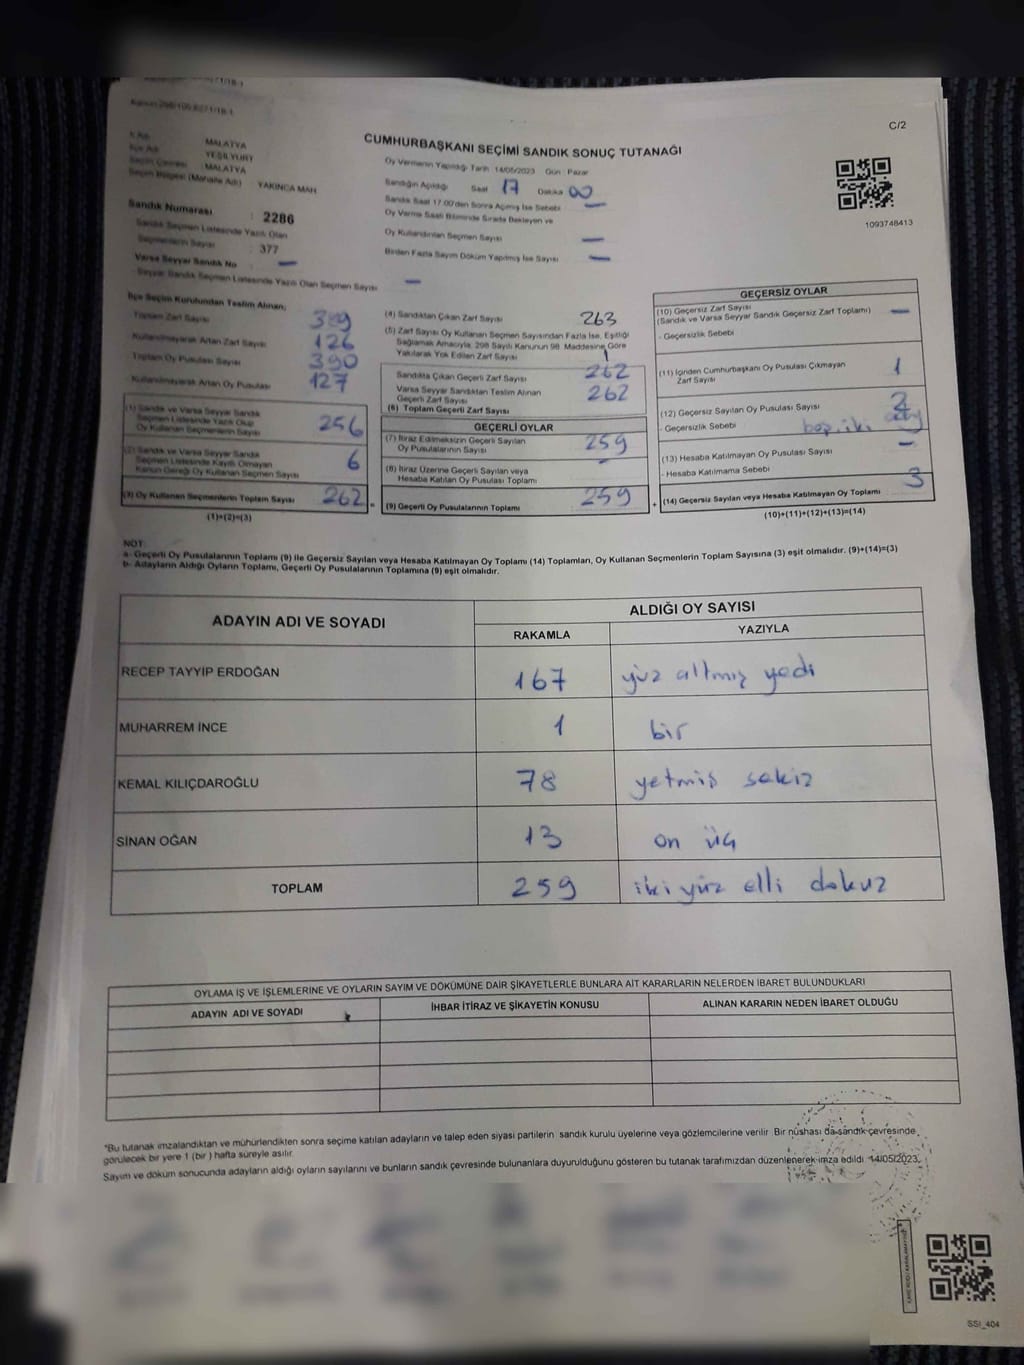 C/2
CUMHURBAŞKANI SEÇİMİ SANDIK SONUÇ TUTANAĞI
MALATYA
YEŞİLYURT
MALATYA
Seçim Bölgesi (Mahalle Adı) YAKINCA MAH
Sandık Numarası : 2286
Sandık Seçmen Listesinde Yazılı Olan
Seçmenlerin Sayısı : 377
Varsa Seyyar Sandık No —
- Seyyar Sandık Seçmen Listesinde Yazılı Olan Seçmen Sayısı —
Oy Vermenin Yapıldığı Tarih 14/05/2023 Gün Pazar
Sandığın Açıldığı Saat 17 Dakika 00
Sandık Saat 17:00'den Sonra Açılmış İse Sebebi —
Oy Verme Saati Bitiminde Sırada Bekleyen ve
Oy Kullandırılan Seçmen Sayısı —
Birden Fazla Sayım Döküm Yapılmış İse Sayısı —
1093748413
İlçe Seçim Kurulundan Teslim Alınan;
Toplam Zarf Sayısı 389
Kullanılmayarak Artan Zarf Sayısı 126
Toplam Oy Pusulası Sayısı 390
- Kullanılmayarak Artan Oy Pusulası 127
(1) Sandık ve Varsa Seyyar Sandık
Seçmen Listesinde Yazılı Olup
Oy Kullanan Seçmenlerin Sayısı 256
(2) Sandık ve Varsa Seyyar Sandık
Seçmen Listesinde Kayıtlı Olmayan
Kanun Gereği Oy Kullanan Seçmen Sayısı 6
(3) Oy Kullanan Seçmenlerin Toplam Sayısı 262 =
(1)+(2)=(3)
(4) Sandıktan Çıkan Zarf Sayısı 263
(5) Zarf Sayısı Oy Kullanan Seçmen Sayısından Fazla İse, Eşitliği
Sağlamak Amacıyla, 298 Sayılı Kanunun 98. Maddesine Göre
Yakılarak Yok Edilen Zarf Sayısı 1
Sandıkta Çıkan Geçerli Zarf Sayısı 262
Varsa Seyyar Sandıktan Teslim Alınan
Geçerli Zarf Sayısı 262
(6) Toplam Geçerli Zarf Sayısı
GEÇERLİ OYLAR
(7) İtiraz Edilmeksizin Geçerli Sayılan
Oy Pusulalarının Sayısı 259
(8) İtiraz Üzerine Geçerli Sayılan veya
Hesaba Katılan Oy Pusulası Toplamı —
(9) Geçerli Oy Pusulalarının Toplamı 259 +
GEÇERSİZ OYLAR
(10) Geçersiz Zarf Sayısı
(Sandık ve Varsa Seyyar Sandık Geçersiz Zarf Toplamı) —
- Geçersizlik Sebebi
(11) İçinden Cumhurbaşkanı Oy Pusulası Çıkmayan
Zarf Sayısı 1
(12) Geçersiz Sayılan Oy Pusulası Sayısı 2
- Geçersizlik Sebebi
(13) Hesaba Katılmayan Oy Pusulası Sayısı —
- Hesaba Katılmama Sebebi
(14) Geçersiz Sayılan veya Hesaba Katılmayan Oy Toplamı 3
(10)+(11)+(12)+(13)=(14)
NOT:
a- Geçerli Oy Pusulalarının Toplamı (9) ile Geçersiz Sayılan veya Hesaba Katılmayan Oy Toplamı (14) Toplamları, Oy Kullanan Seçmenlerin Toplam Sayısına (3) eşit olmalıdır. (9)+(14)=(3)
b- Adayların Aldığı Oyların Toplamı, Geçerli Oy Pusulalarının Toplamına (9) eşit olmalıdır.
ADAYIN ADI VE SOYADI ALDIĞI OY SAYISI
RAKAMLA YAZIYLA
RECEP TAYYİP ERDOĞAN 167 yüz altmış yedi
MUHARREM İNCE 1 bir
KEMAL KILIÇDAROĞLU 78 yetmiş sekiz
SİNAN OĞAN 13 on üç
TOPLAM 259 iki yüz elli dokuz
OYLAMA İŞ VE İŞLEMLERİNE VE OYLARIN SAYIM VE DÖKÜMÜNE DAİR ŞİKAYETLERLE BUNLARA AİT KARARLARIN NELERDEN İBARET BULUNDUKLARI
ADAYIN ADI VE SOYADI İHBAR İTİRAZ VE ŞİKAYETİN KONUSU ALINAN KARARIN NEDEN İBARET OLDUĞU
*Bu tutanak imzalandıktan ve mühürlendikten sonra seçime katılan adayların ve talep eden siyasi partilerin sandık kurulu üyelerine veya gözlemcilerine verilir. Bir nüshası da sandık çevresinde
görülecek bir yere 1 (bir) hafta süreyle asılır.
Sayım ve döküm sonucunda adayların aldığı oyların sayılarını ve bunların sandık çevresinde bulunanlara duyurulduğunu gösteren bu tutanak tarafımızdan düzenlenerek imza edildi. 14/05/2023
SSI_404